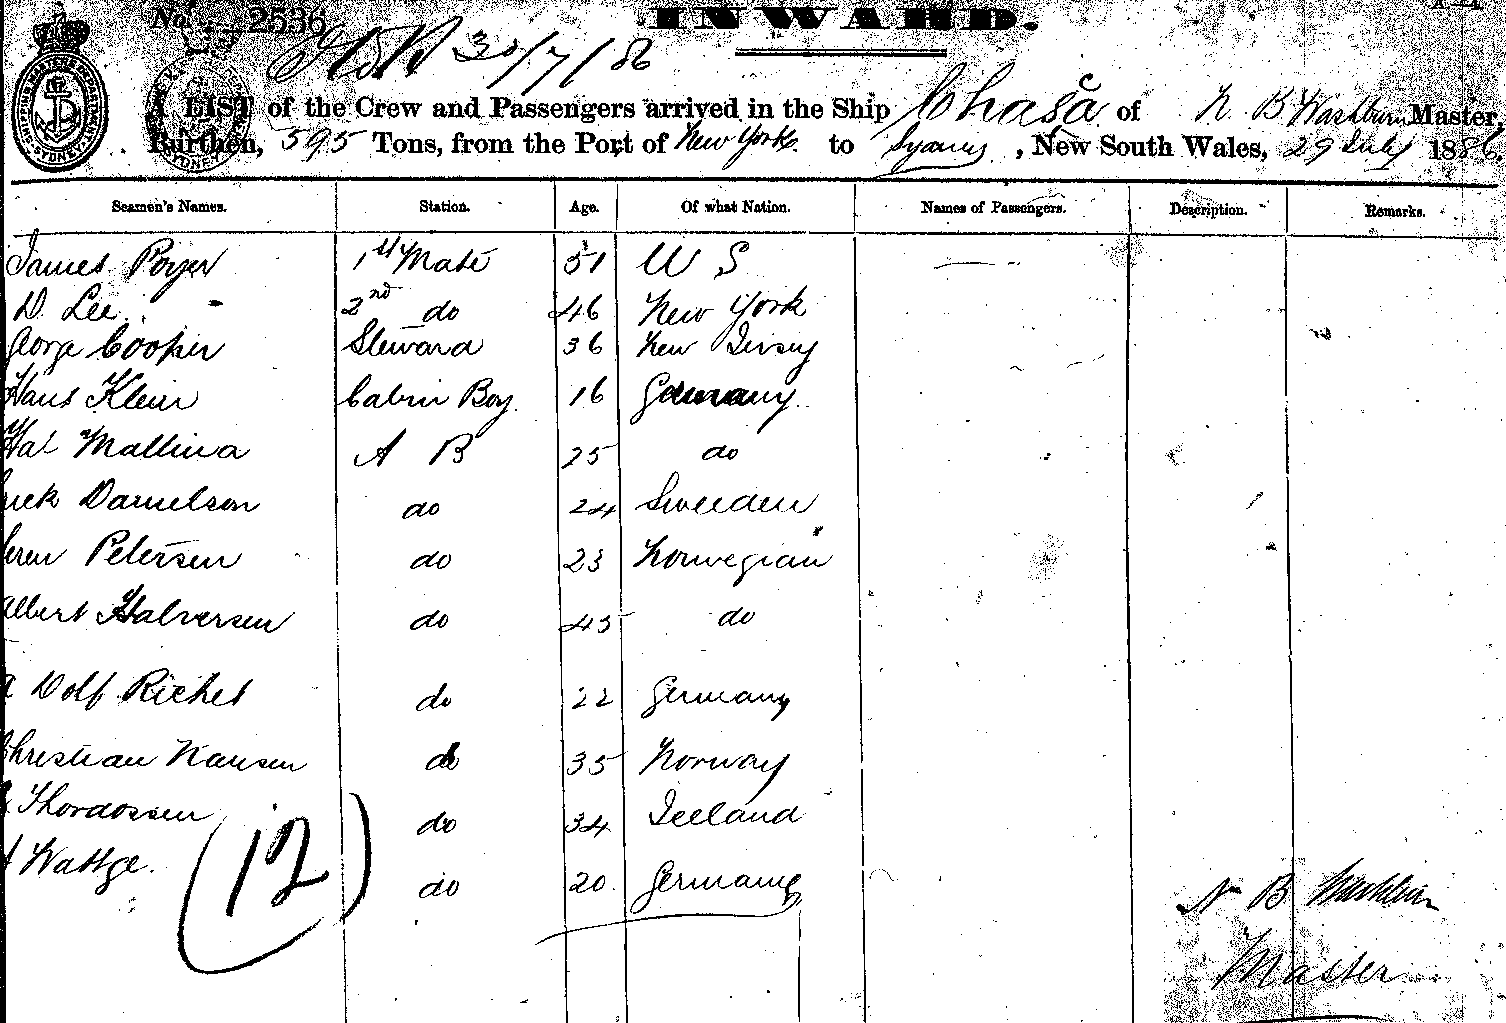 No. 2536
INWARD.
30/7/86
A LIST of the Crew and Passengers arrived in the Ship Chasca of N. B Washburn Master,
Burthen, 595 Tons, from the Port of New York to Sydney, New South Wales, 29 July 1886
Seamen's Names. Station. Age. Of what Nation. Names of Passengers. Description. Remarks.
James Poyer 1st Mate 51 U S
D. Lee 2nd do 46 New York
George Cooper Steward 36 New Jersey
Hans Klein Cabin Boy 16 Germany
Mallina A B 25 do
Danielson do 24 Sweden
Petersen do 23 Norwegian
Albert Halversen do 45 do
Dolf Richel do 22 Germany
Christian Hansen do 35 Norway
Thordossen do 34 Iceland
Wattge. do 20 Germany
(12)
N B Washburn
Master